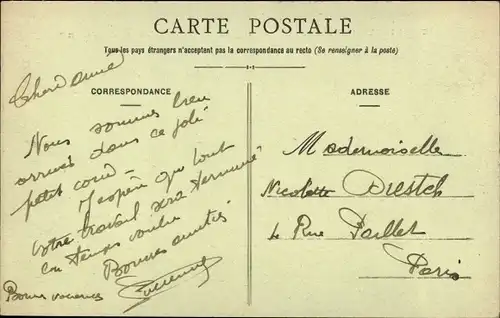 CARTE POSTALE
Tous les pays étrangers n'acceptent pas la correspondance au recto (Se renseigner à la poste)
CORRESPONDANCE
ADRESSE
Nous sommes bien
arrivés dans ce joli
petit coin —
J'espère que tout
votre travail sera terminé
en temps voulu
Bonnes amitiés
Bonnes vacances
Mademoiselle
Nicolette
4 Rue Paillet
Paris